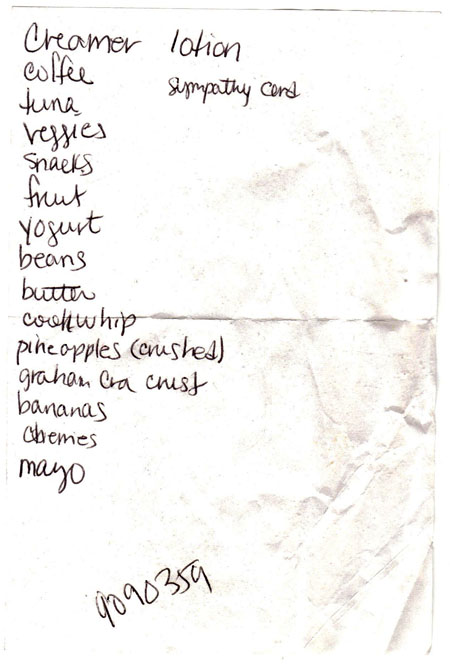 Creamer
coffee
tuna
veggies
snacks
fruit
yogurt
beans
butter
coolwhip
pineapples (crushed)
graham cra crust
bananas
cherries
mayo
lotion
sympathy card
9090359